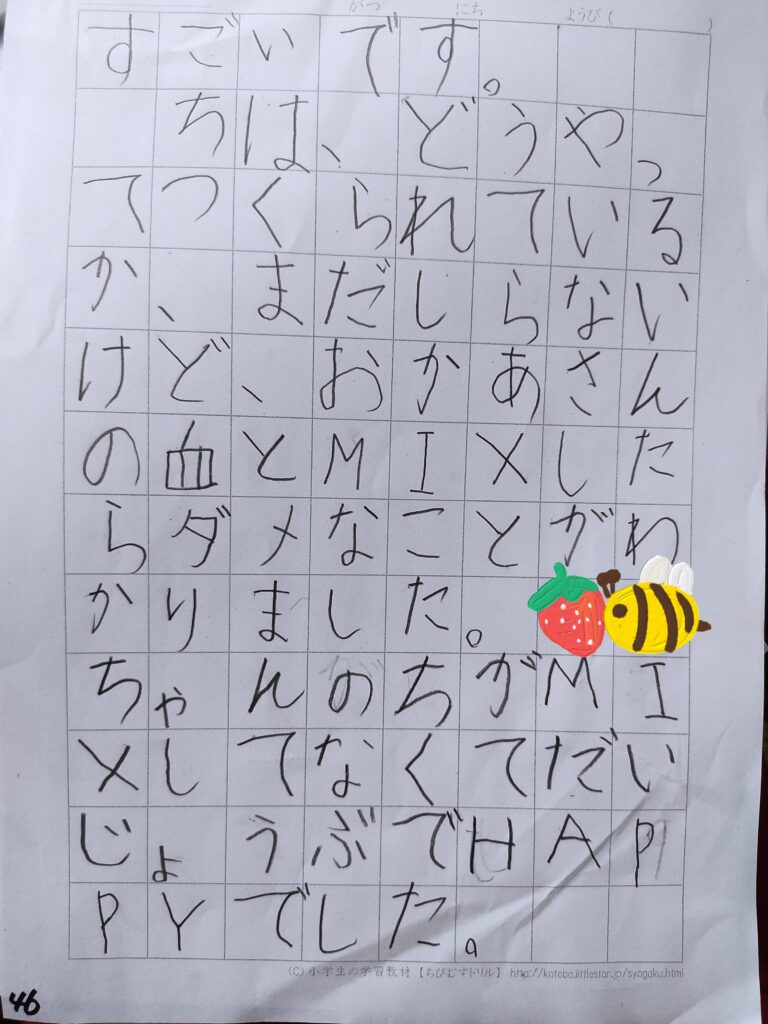 がつ にち ようび ( )
すごいです。
ちは、どうやっ
てつくられている
か、まだしらない
けど、おかあさん
の血とMIXした
らダメなことがわ
かりました。
ちゃんのちがMI
Xしてなくてだい
じょうぶでHAP
PYでした。
(C) 小学生の学習教材 【ちびむすドリル】 http://katoba.littlestar.jp/syogaku.html
46